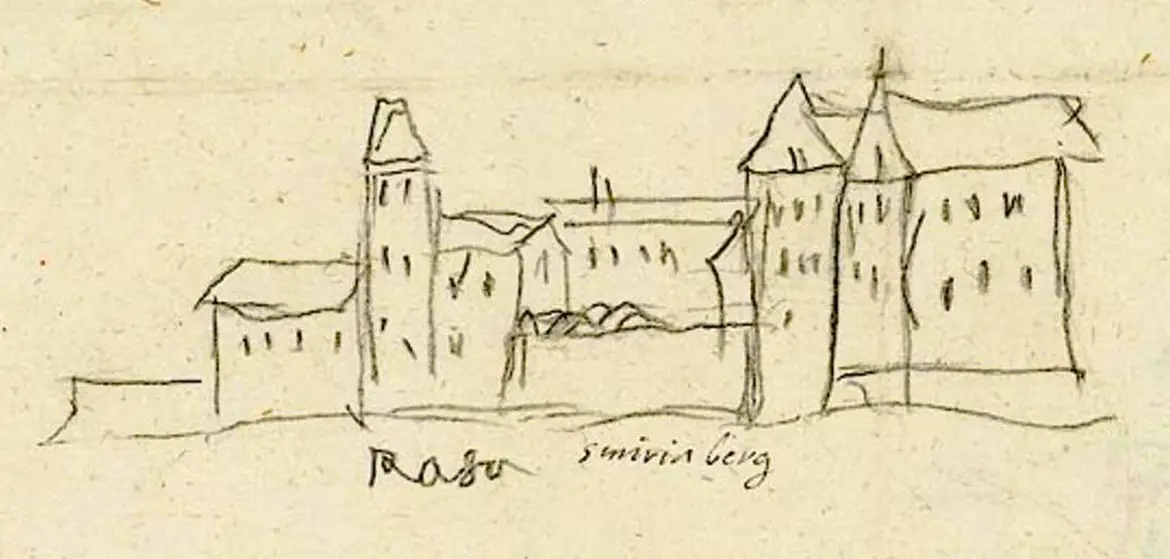 Raso smirinberg